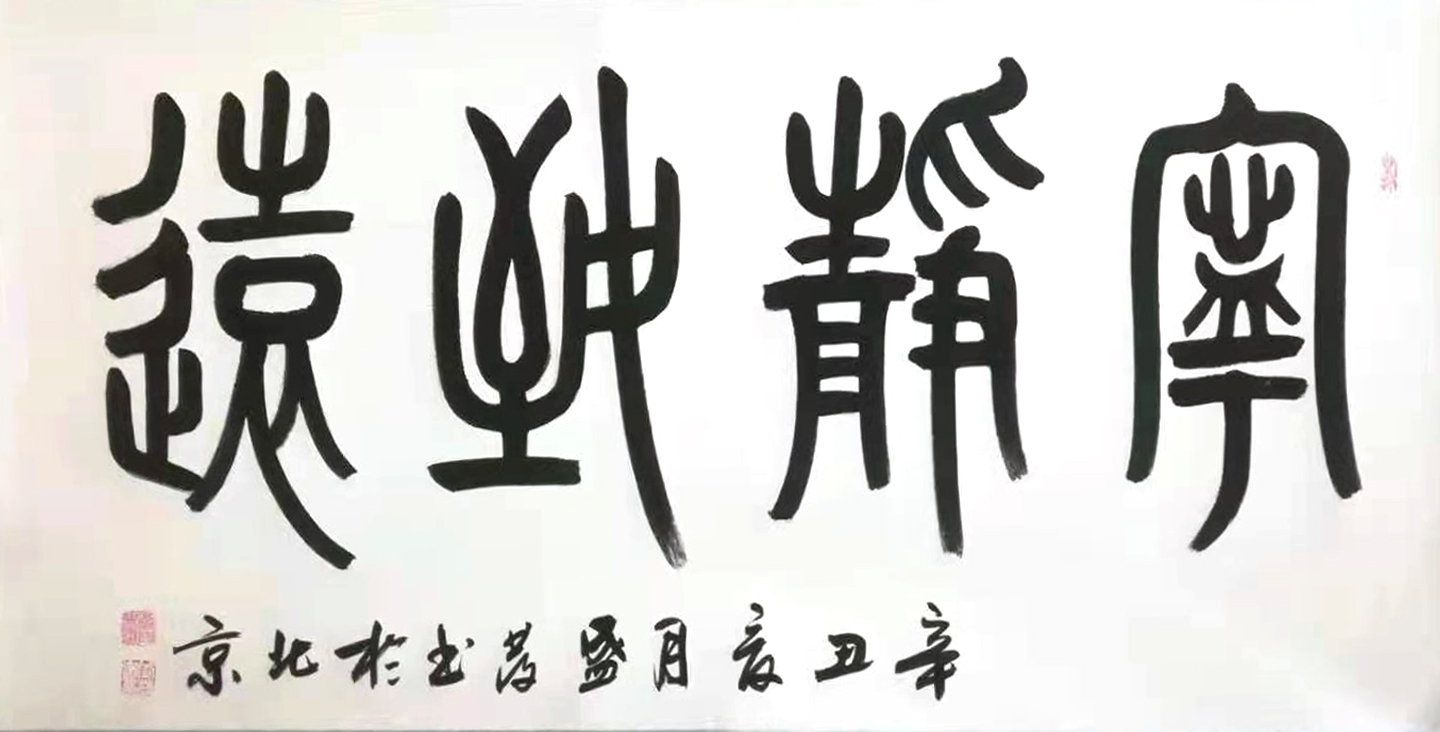 寧靜致遠
辛丑夏月盛书於北京